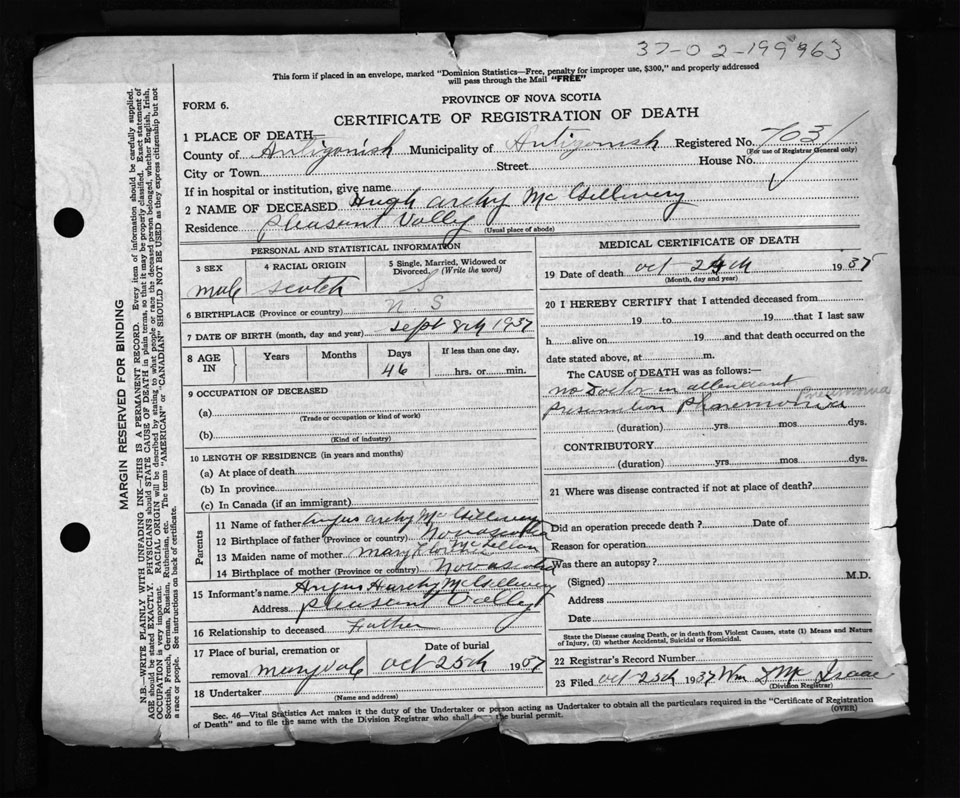 37-02-199963
This form if placed in an envelope, marked "Dominion Statistics—Free, penalty for improper use, $300," and properly addressed
will pass through the Mail "FREE"
FORM 6.
PROVINCE OF NOVA SCOTIA
CERTIFICATE OF REGISTRATION OF DEATH
1 PLACE OF DEATH—
County of Antigonish Municipality of Antigonish Registered No. 703
(For use of Registrar General only)
City or Town Street House No.
If in hospital or institution, give name
2 NAME OF DECEASED Hugh Archy McGillivery
Residence Pleasant Vally
(Usual place of abode)
PERSONAL AND STATISTICAL INFORMATION
3 SEX 4 RACIAL ORIGIN 5 Single, Married, Widowed or
Divorced. (Write the word)
male Scotch S
6 BIRTHPLACE (Province or country) N S
7 DATE OF BIRTH (month, day and year) Sept 8th 1937
8 AGE IN Years Months Days If less than one day,
46 hrs. or min.
9 OCCUPATION OF DECEASED
(a)
(Trade or occupation or kind of work)
(b)
(Kind of industry)
10 LENGTH OF RESIDENCE (in years and months)
(a) At place of death
(b) In province
(c) In Canada (if an immigrant)
Parents
11 Name of father Angus Archy McGillivery
12 Birthplace of father (Province or country) Nova Scotia
13 Maiden name of mother Mary McLellan
14 Birthplace of mother (Province or country) Nova Scotia
15 Informant's name Angus Harchy McGillivery
Address Pleasant Vally
16 Relationship to deceased Father
17 Place of burial, cremation or Date of burial
removal Marydale Oct 25th 1937
18 Undertaker
(Name and address)
MEDICAL CERTIFICATE OF DEATH
19 Date of death Oct 24th 1937
(Month, day and year)
20 I HEREBY CERTIFY that I attended deceased from
19 to 19 that I last saw
h alive on 19 and that death occurred on the
date stated above, at m.
The CAUSE of DEATH was as follows:—
no Doctor in attendant
Pneumonia
(duration) yrs. mos. dys.
CONTRIBUTORY
(duration) yrs. mos. dys.
21 Where was disease contracted if not at place of death?
Did an operation precede death? Date of
Reason for operation
Was there an autopsy?
(Signed) M.D.
Address
Date
State the Disease causing Death, or in death from Violent Causes, state (1) Means and Nature
of Injury, (2) whether Accidental, Suicidal or Homicidal.
22 Registrar's Record Number
23 Filed Oct 25th 1937 Wm McIsaac
(Division Registrar)
Sec. 46—Vital Statistics Act makes it the duty of the Undertaker or person acting as Undertaker to obtain all the particulars required in the "Certificate of Registration
of Death" and to file the same with the Division Registrar who shall the burial permit.
(OVER)
MARGIN RESERVED FOR BINDING
N.B.—WRITE PLAINLY WITH UNFADING INK—THIS IS A PERMANENT RECORD. Every item of information should be carefully supplied.
AGE should be stated EXACTLY. PHYSICIANS should STATE CAUSE OF DEATH in plain terms, so that it may be properly classified. Exact statement of
OCCUPATION is very important. RACIAL ORIGIN will be described by stating to what people or race the deceased person belonged, whether English, Irish,
Scottish, French, German, Russian, Ruthenian, etc. The terms "AMERICAN" or "CANADIAN" SHOULD NOT BE USED as they express citizenship but not
a race or people. See instructions on back of certificate.